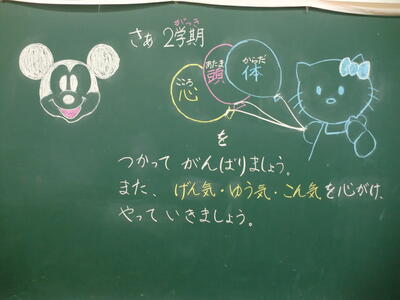 さぁ 2学期
がっき
こころ
心
あたま
頭
からだ
体
を
つかって がんばりましょう。
また、 げん気・ゆう気・こん気を心がけ、
やって いきましょう。